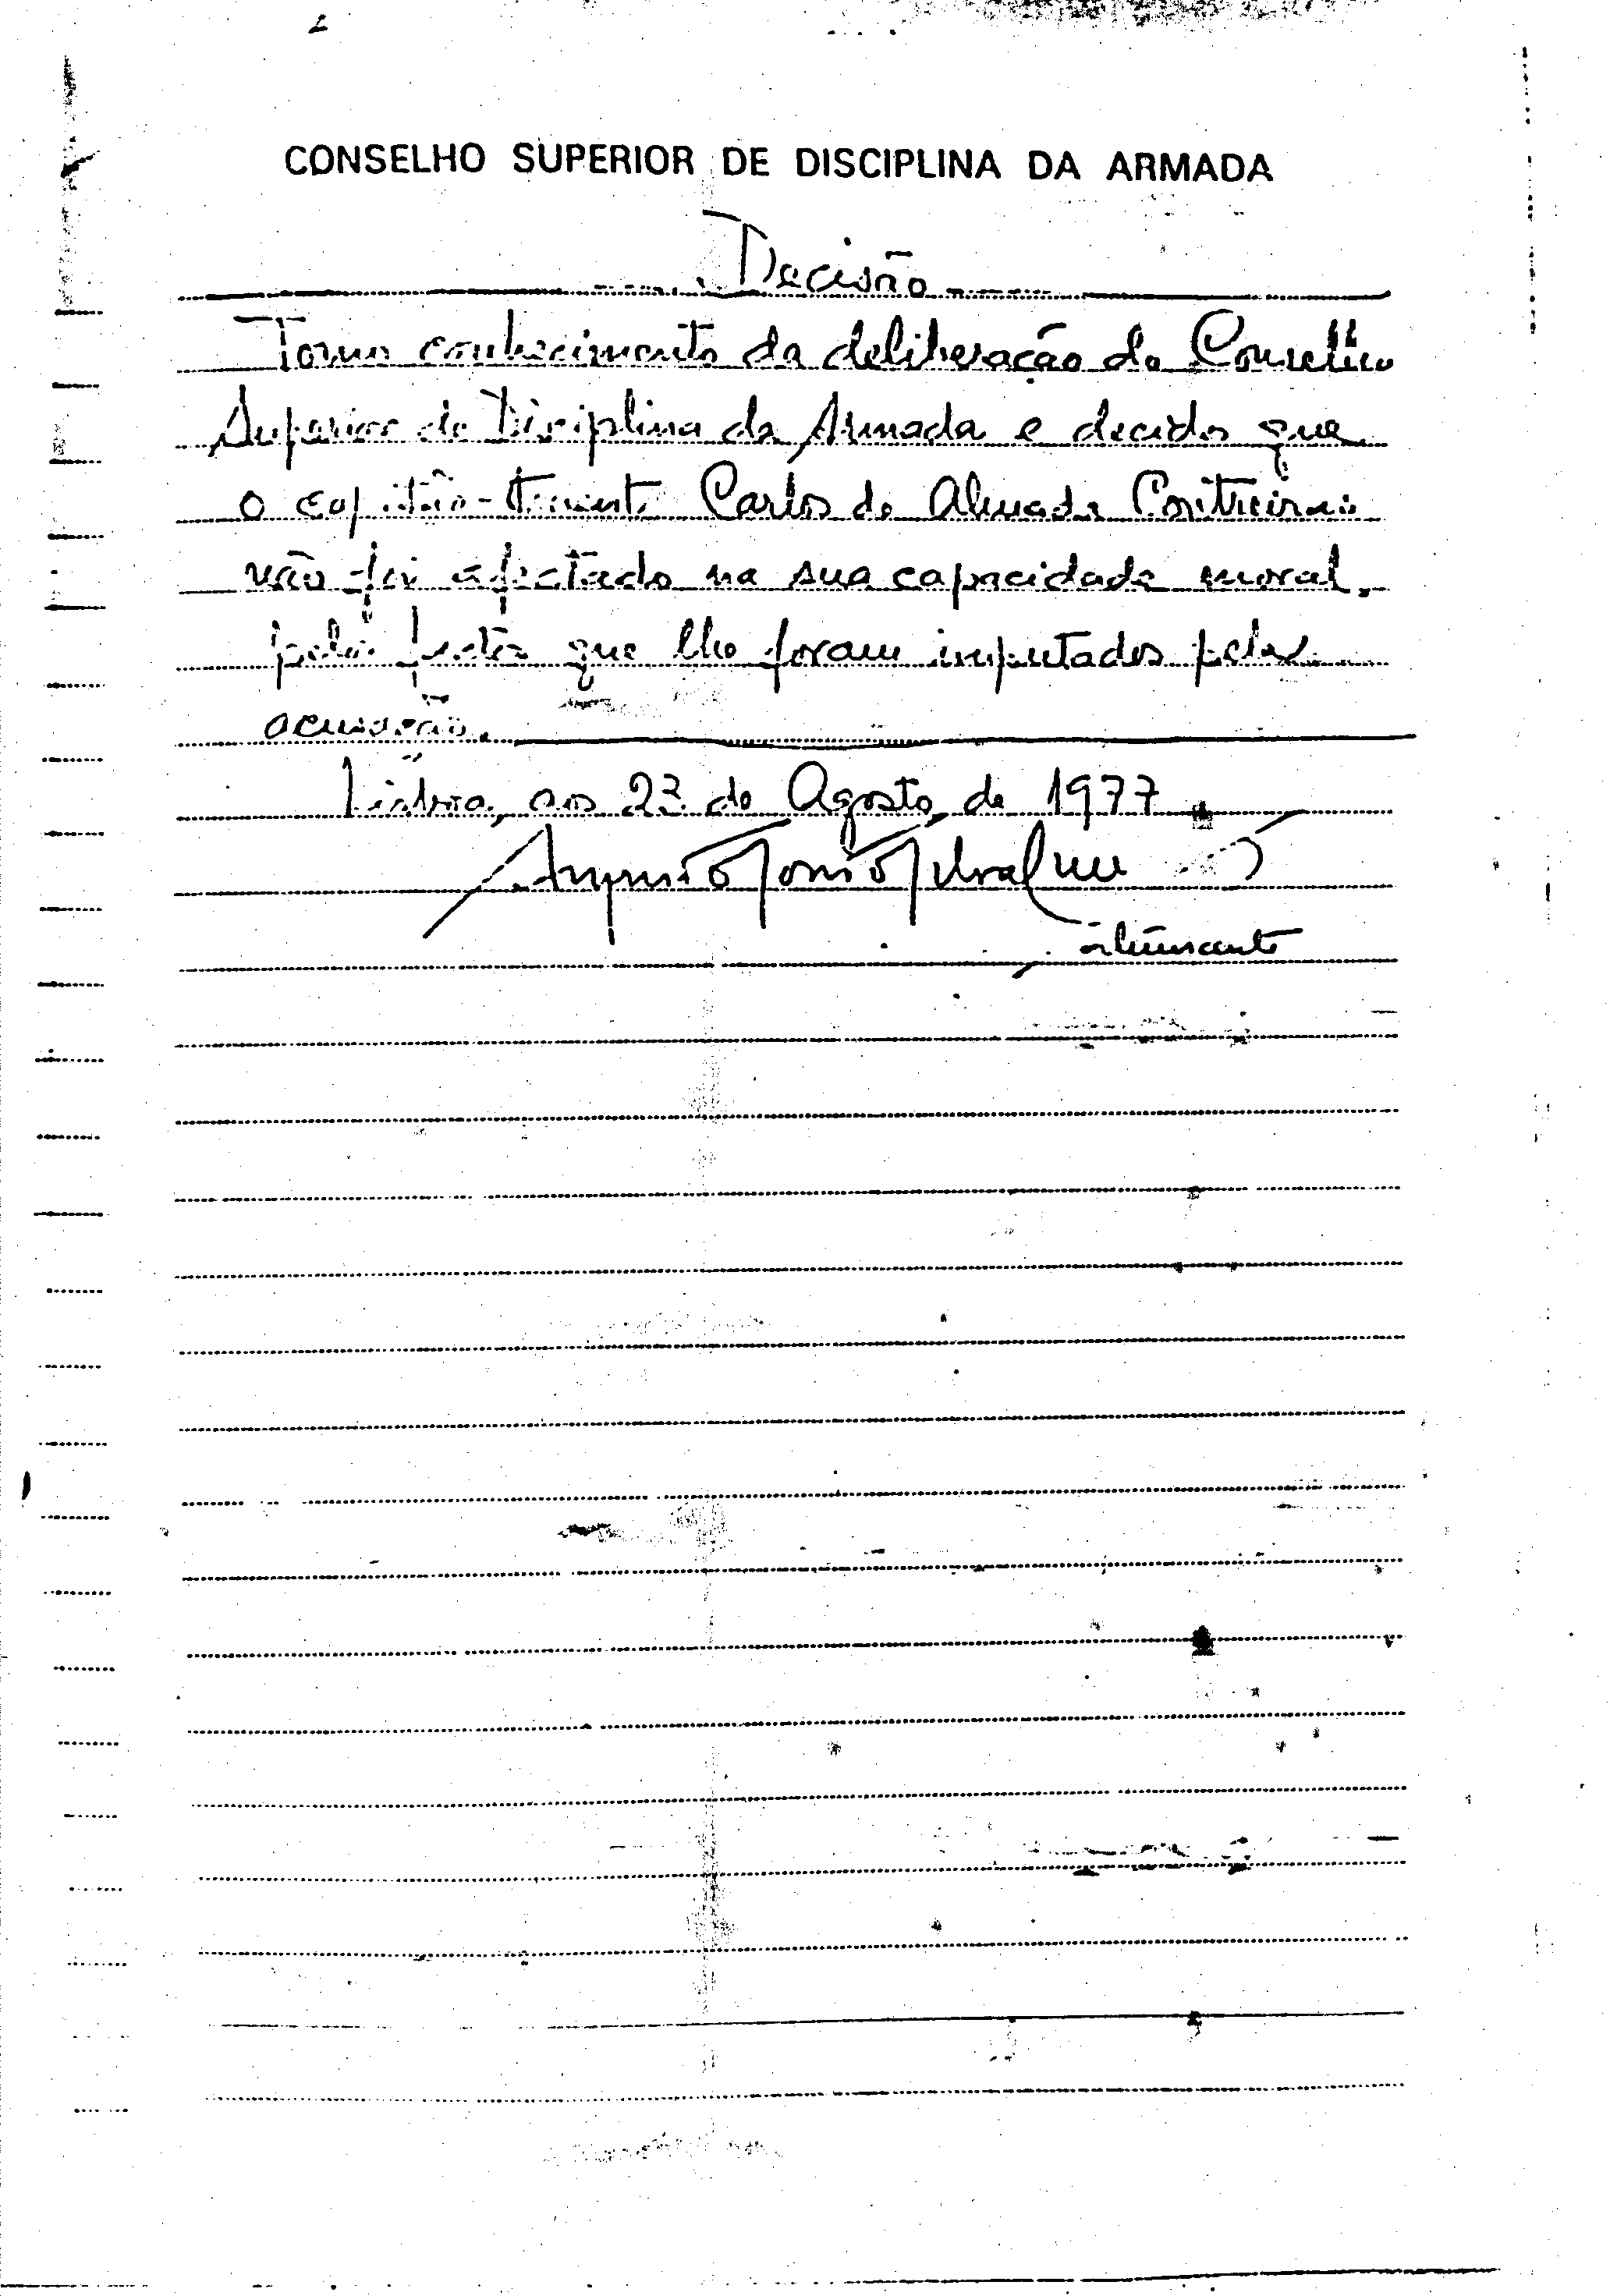 CONSELHO SUPERIOR DE DISCIPLINA DA ARMADA
Decisão
Tomo conhecimento da deliberação do Conselho
Superior de Disciplina da Armada e decido que
o capitão-tenente Carlos de Almada Contreiras
não foi afectado na sua capacidade moral,
pelos factos que lhe foram imputados pelas
acusações.
Lisboa, aos 23 de Agosto de 1977
almirante